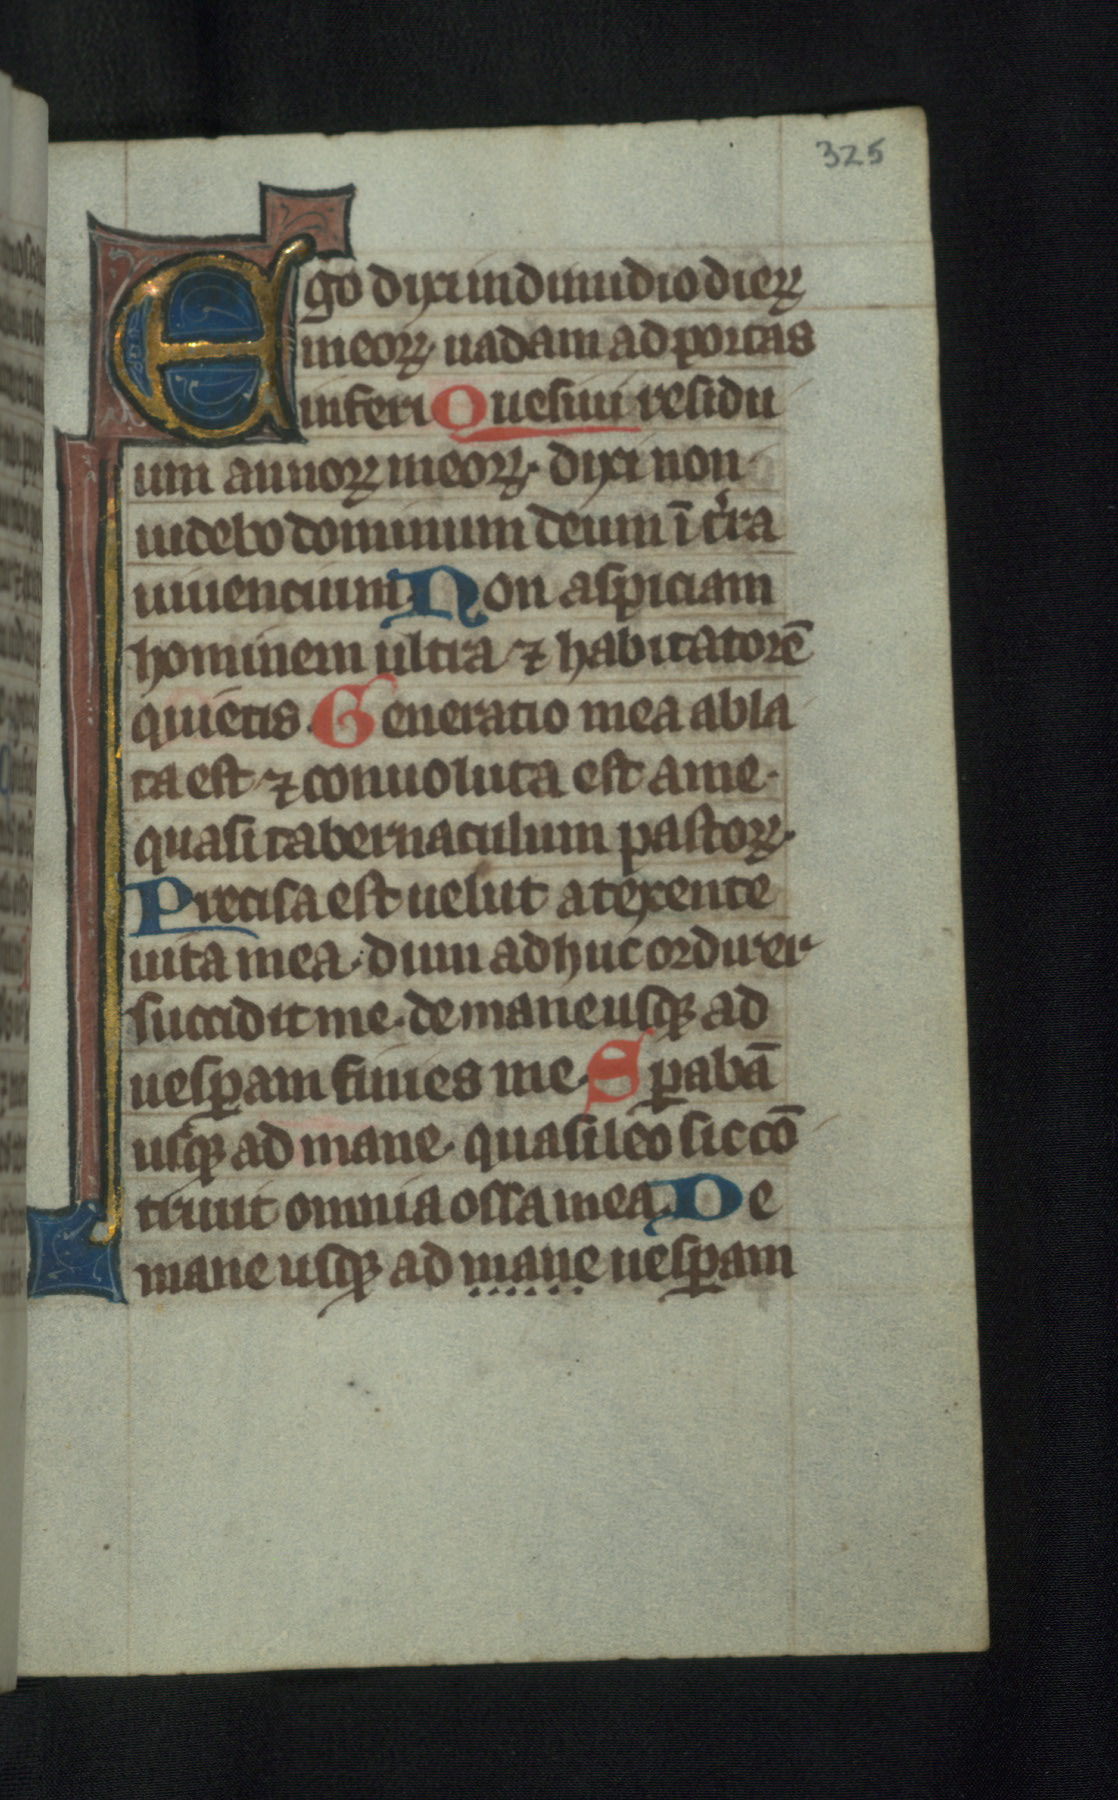 325
Ego dixi in dimidio dieꝝ
meoꝝ uadam ad portas
inferi Quesiui residu
um annoꝝ meoꝝ· dixi non·
uidebo dominum deum ī t̓ra
uiuencium Non aspiciam
hominem ultra ⁊ habitatorē
quietis· Generatio mea abla
ta est· ⁊ conuoluta est a me·
quasi tabernaculum pastoꝝ·
Precisa est uelut a texente
uita mea· dum adhuc ordirer
succidit me· de mane usqꝫ ad
uesꝑam finies me· Sꝑabā
usqꝫ ad mane· quasi leo sic cō
triuit omnia ossa mea· De
mane usqꝫ ad mane uesꝑam